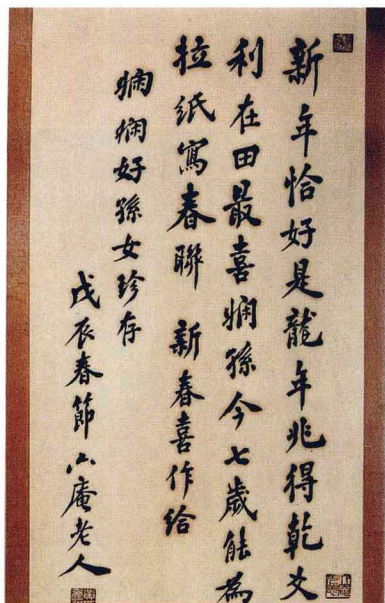 新年恰好是龍年兆得乾爻
利在田最喜嫻孫今七歲能為
拉紙寫春聯 新春喜作給
嫻嫻好孫女珍存
戊辰春節山庵老人